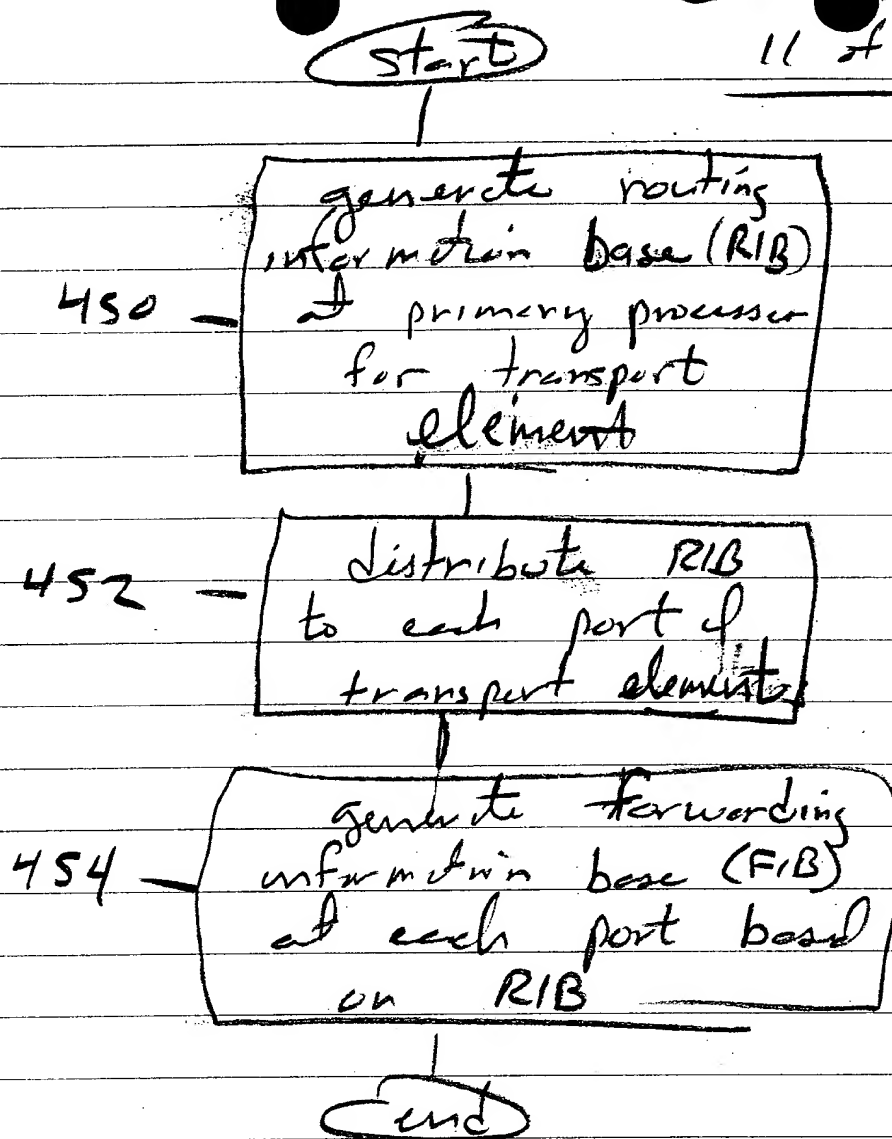 start
11 of
generate routing
information base (RIB)
450 - at primary processor
for transport
element
452 - distribute RIB
to each port of
transport element
generate forwarding
454 - information base (FIB)
at each port based
on RIB
end